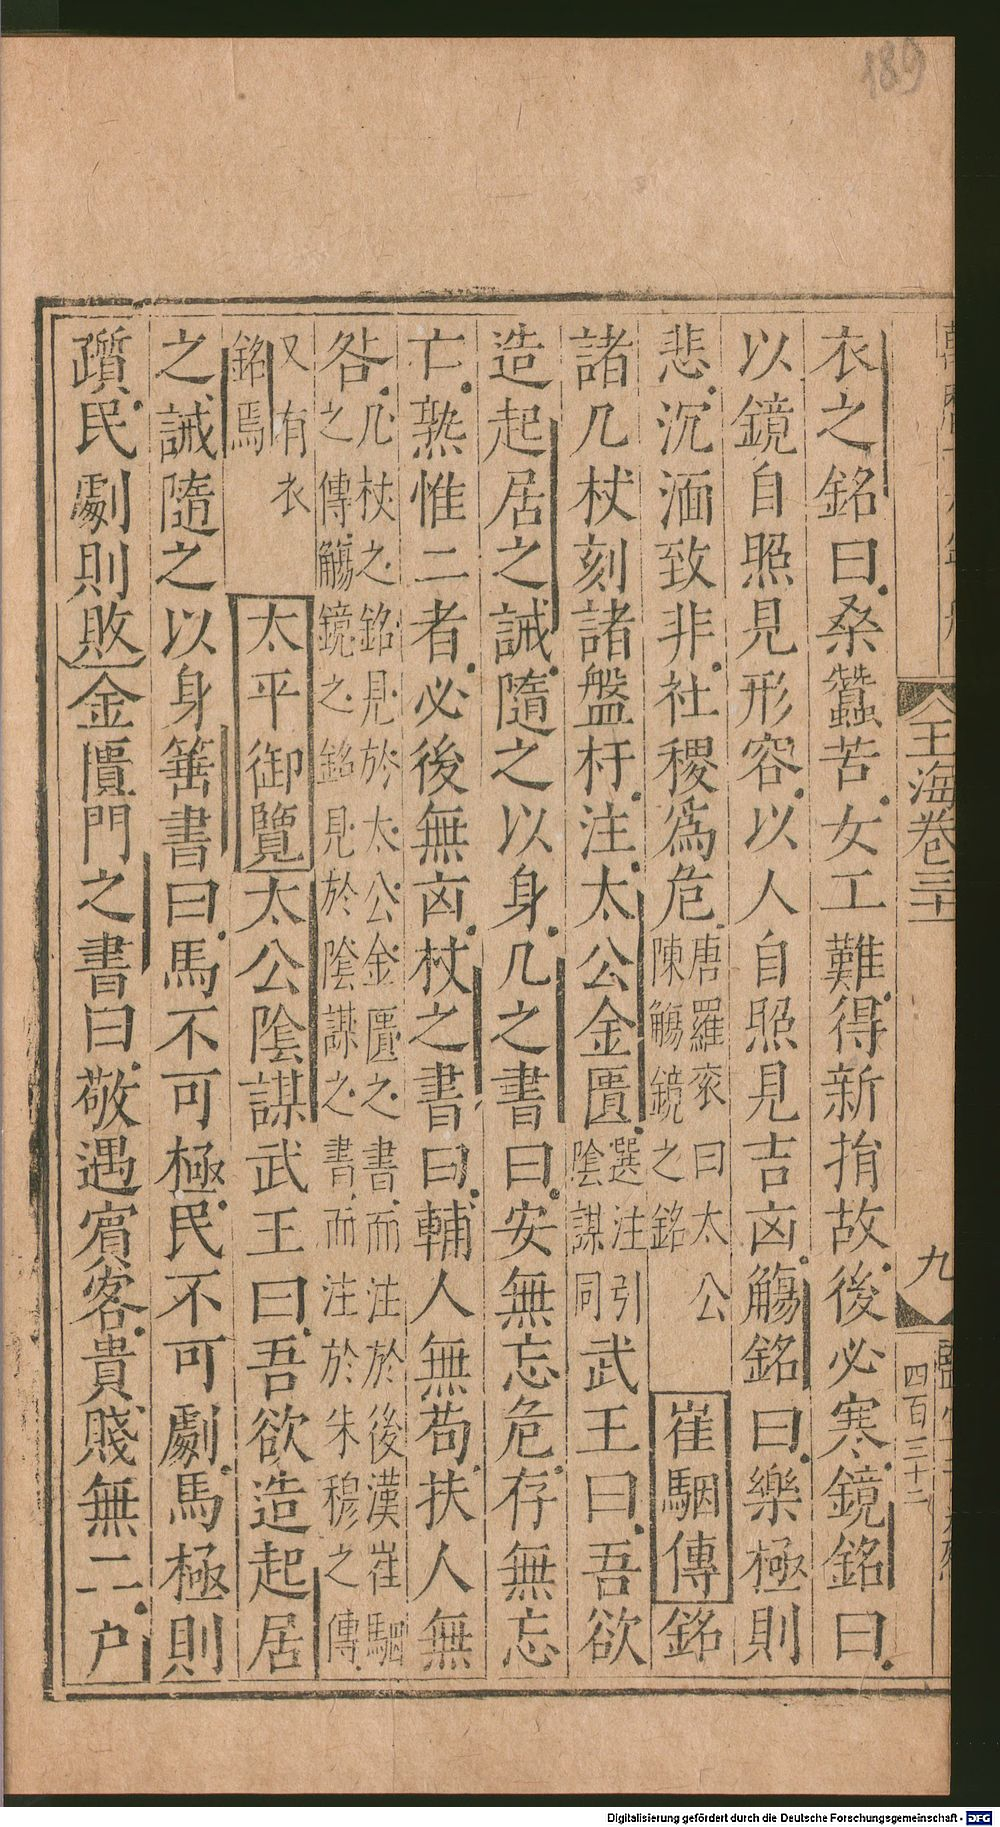 189
玉海卷三十一
九
四百三十二
衣之銘曰桑蠶苦女工難得新捐故後必寒鏡銘曰
以鏡自照見形容以人自照見吉凶觴銘曰樂極則
悲沉湎致非社稷爲危唐羅衮曰太公陳觴鏡之銘崔駰傳銘
諸几杖刻諸盤杅注太公金匱選注引陰謀同武王曰吾欲
造起居之誡隨之以身几之書曰安無忘危存無忘
亡熟惟二者必後無凶杖之書曰輔人無苟扶人無
咎几杖之銘見於太公金匱之書而注於後漢崔駰之傳觴鏡之銘見於陰謀之書而注於朱穆之傳
又有衣銘焉太平御覽太公陰謀武王曰吾欲造起居
之誡隨之以身箠書曰馬不可極民不可劇馬極則
躓民劇則敗金匱門之書曰敬遇賓客貴賤無二户
Digitalisierung gefördert durch die Deutsche Forschungsgemeinschaft - DFG